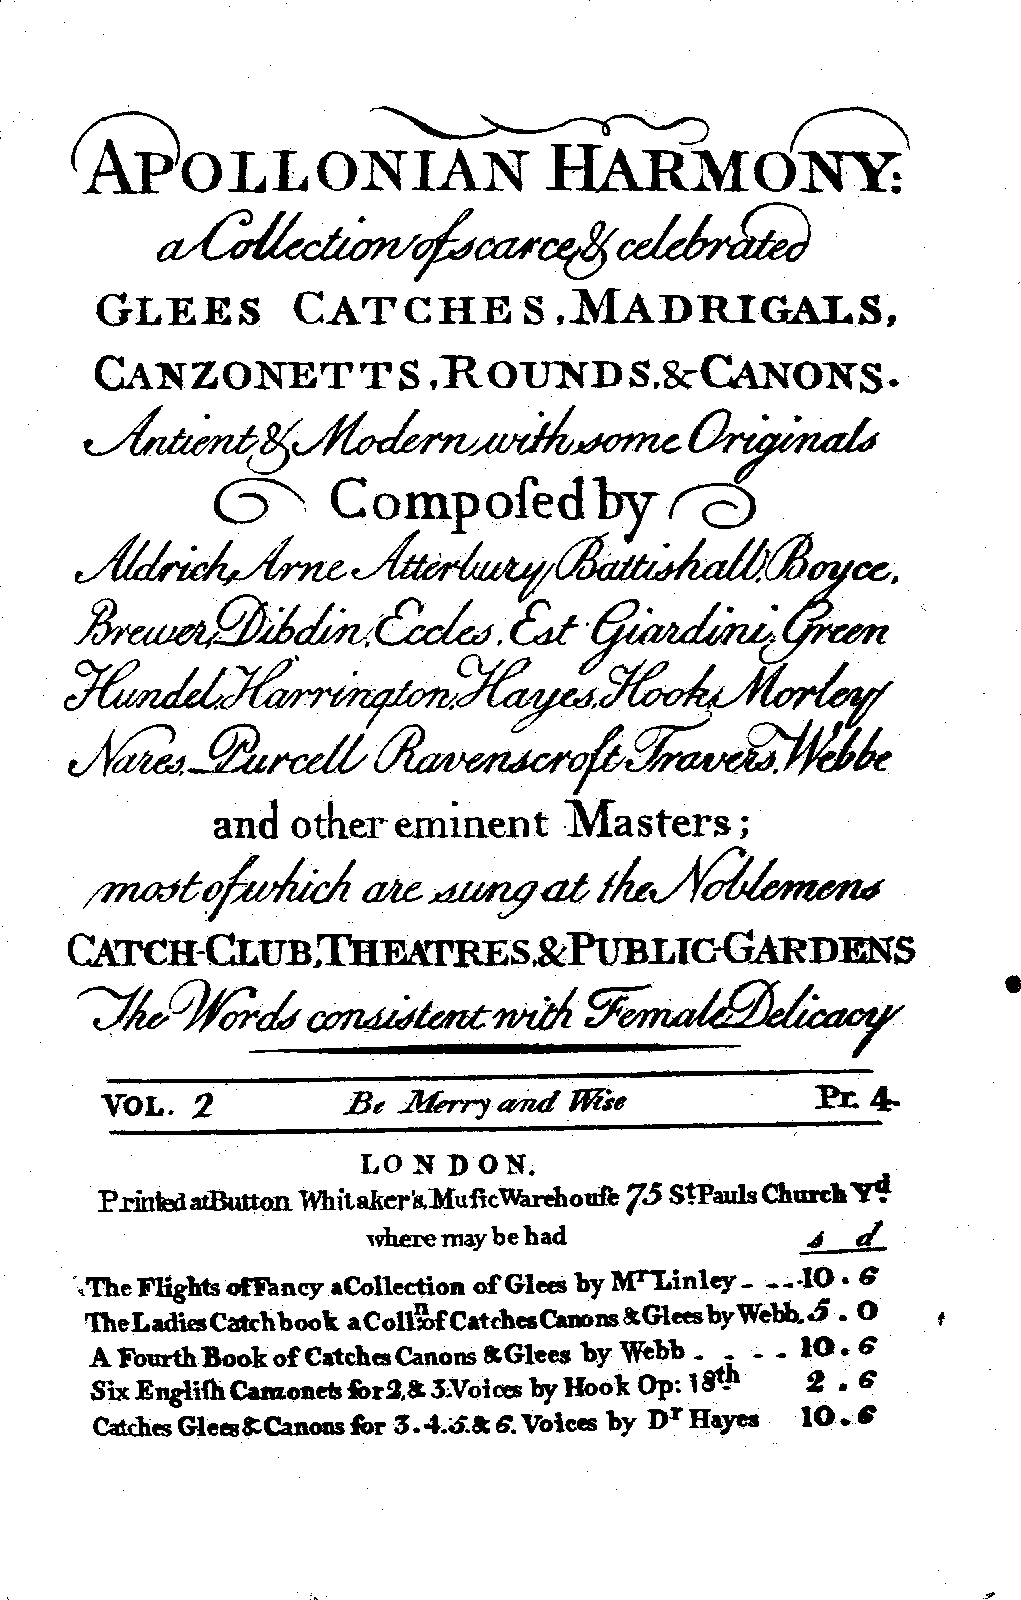 APOLLONIAN HARMONY:
a Collection of scarce & celebrated
GLEES CATCHES, MADRIGALS,
CANZONETTS, ROUNDS, & CANONS.
Antient & Modern with some Originals
Compoſed by
Aldrich, Arne Atterbury Battishall, Boyce,
Brewer, Dibdin, Eccles, Est Giardini, Green
Handel, Harrington, Hayes, Hook, Morley
Nares, Purcell Ravenscroft Travers, Webbe
and other eminent Masters;
most of which are sung at the Noblemens
CATCH-CLUB, THEATRES, & PUBLIC-GARDENS
The Words consistent with Female Delicacy
VOL. 2 Be Merry and Wise Pr. 4
LONDON.
Printed at Button Whitaker's, Muſic Warehouſe 75 St. Pauls Church Yd.
where may be had s d
The Flights of Fancy a Collection of Glees by Mr Linley - - - 10 . 6
The Ladies Catch book a Colln. of Catches Canons & Glees by Webb. 5 . 0
A Fourth Book of Catches Canons & Glees by Webb - - - - 10 . 6
Six Engliſh Canzonets for 2, & 3. Voices by Hook Op: 18th. 2 . 6
Catches Glees & Canons for 3 . 4 . 5 . & 6. Voices by Dr Hayes 10 . 6